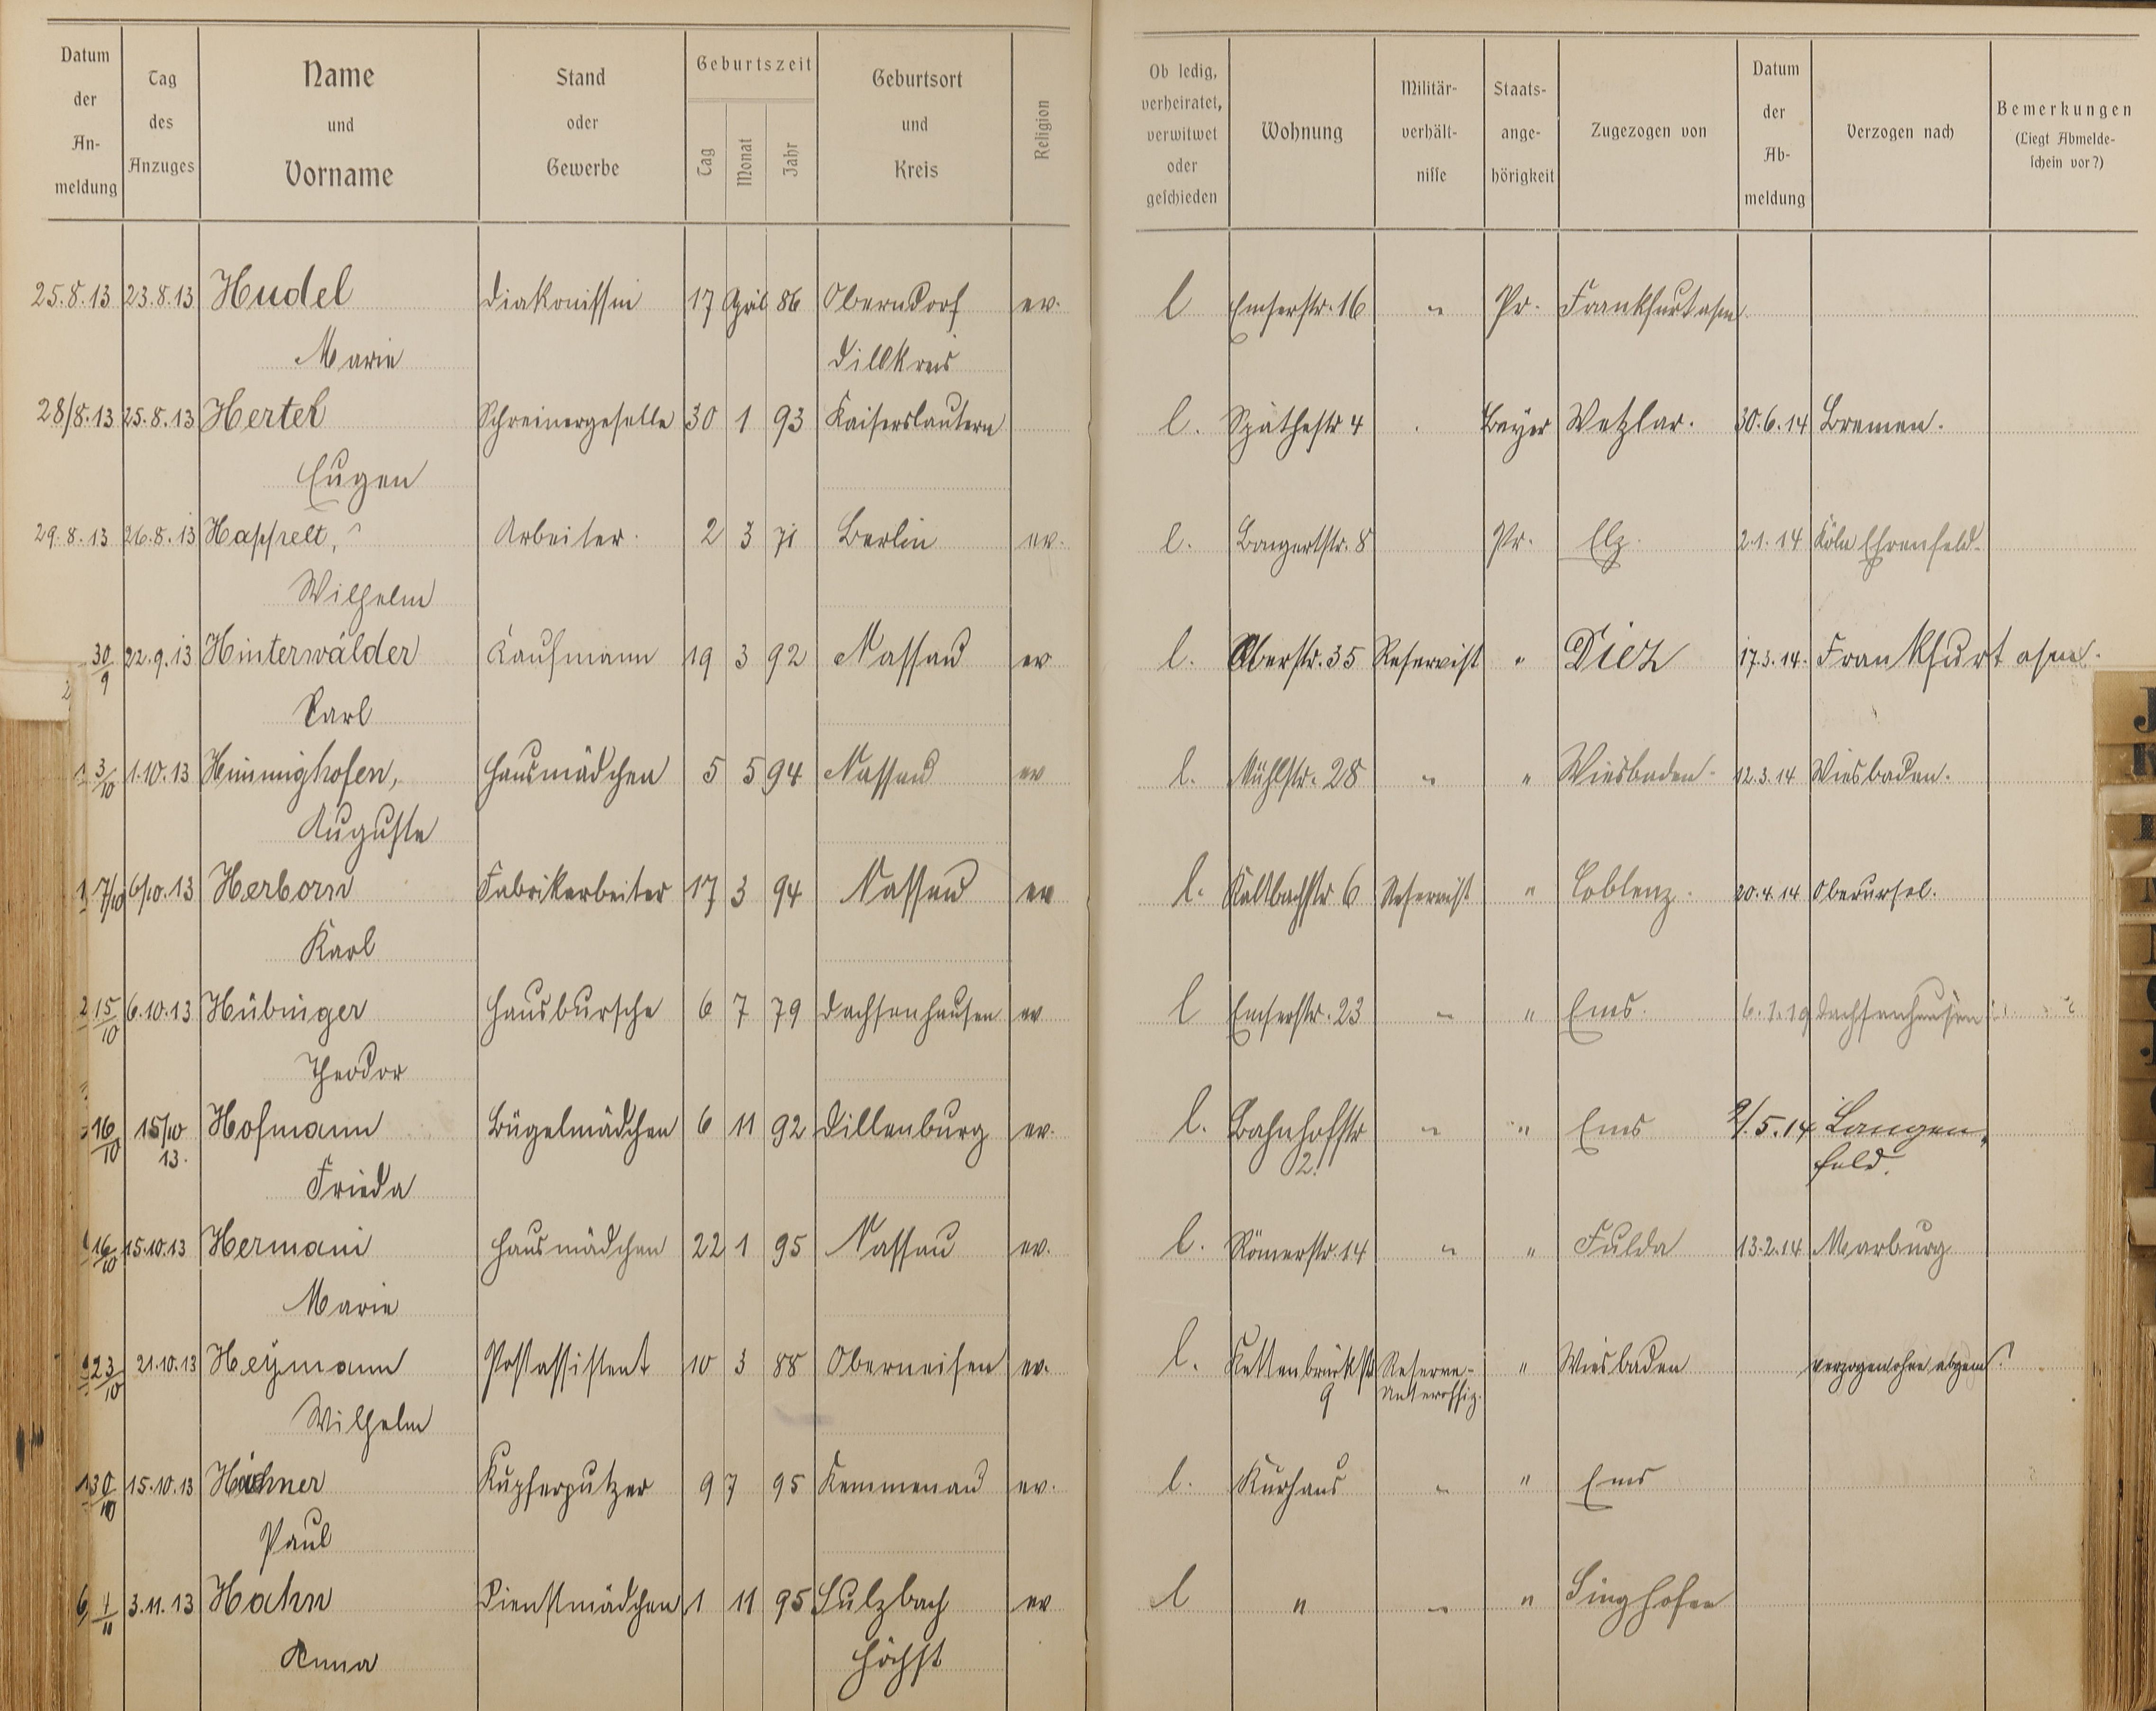 Datum der An- meldung | Tag des Anzuges | Name und Vorname | Stand oder Gewerbe | Geburtszeit Tag Monat Jahr | Geburtsort und Kreis | Religion | Ob ledig, verheiratet, verwitwet oder geschieden | Wohnung | Militär- verhält- nisse | Staats- ange- hörigkeit | Zugezogen von | Datum der Ab- meldung | Verzogen nach | Bemerkungen (Liegt Abmelde- schein vor?)
25.8.13 23.8.13 Hudel Diakonissin 17 April 86 Oberndorf ev. l Emserstr. 16 " Pr. Frankfurt a/m
Marie Dillkreis
28/8.13 25.8.13 Hertel Schreinergeselle 30 1 93 Kaiserslautern l. Späthestr 4 Bayer Wetzlar. 30.6.14 Bremen.
Eugen
29.8.13 26.8.13 Arbeiter. 2 3 71 Berlin ev. l. Bongertstr. 8 Pr. Elz. 2.1.14 Köln Ehrenfeld.
Wilhelm
30/9 22.9.13 Hinterwälder Kaufmann 19 3 92 Nassau ev l. Oberstr. 35 Reservist " Diez 17.3.14. Frankfurt a/m.
Carl
3/10 1.10.13 Himmighofen, Hausmädchen 5 5 94 Nassau ev l. Mühlstr. 28 " " Wiesbaden. 12.3.14 Wiesbaden.
Auguste
7/10 6/10.13 Herborn Fabrikarbeiter 17 3 94 Nassau ev l. Kaltbachstr 6 Reservist " Coblenz. 20.4.14 Oberursel.
Karl
15/10 6.10.13 Hübinger Hausbursche 6 7 79 Dachsenhausen ev l Emserstr. 23 " " Ems. 6.1.19 Dachsenhausen
Theodor
16/10 15/10 13. Hofmann Bügelmädchen 6 11 92 Dillenburg ev. l. Bahnhofstr 2. " " Ems 2/5.14 Langen-
Frieda feld.
16/10 15.10.13 Hermani Hausmädchen 22 1 95 Nassau ev. l. Römerstr. 14 " " Fulda 13.2.14 Marburg
Marie
23/10 21.10.13 Heymann Postassistent 10 3 88 Oberneisen ev. l. Kettenbrückstr 9 Reserve- Unteroffiz. " Wiesbaden verzogen ohne abgem?
Wilhelm
30/10 15.10.13 Kupferputzer 9 7 95 Kemmenau ev. l. Kurhaus " " Ems
Paul
4/11 3.11.13 Hahn Dienstmädchen 1 11 95 Sulzbach ev l " " " Singhofen
Anna Höchst